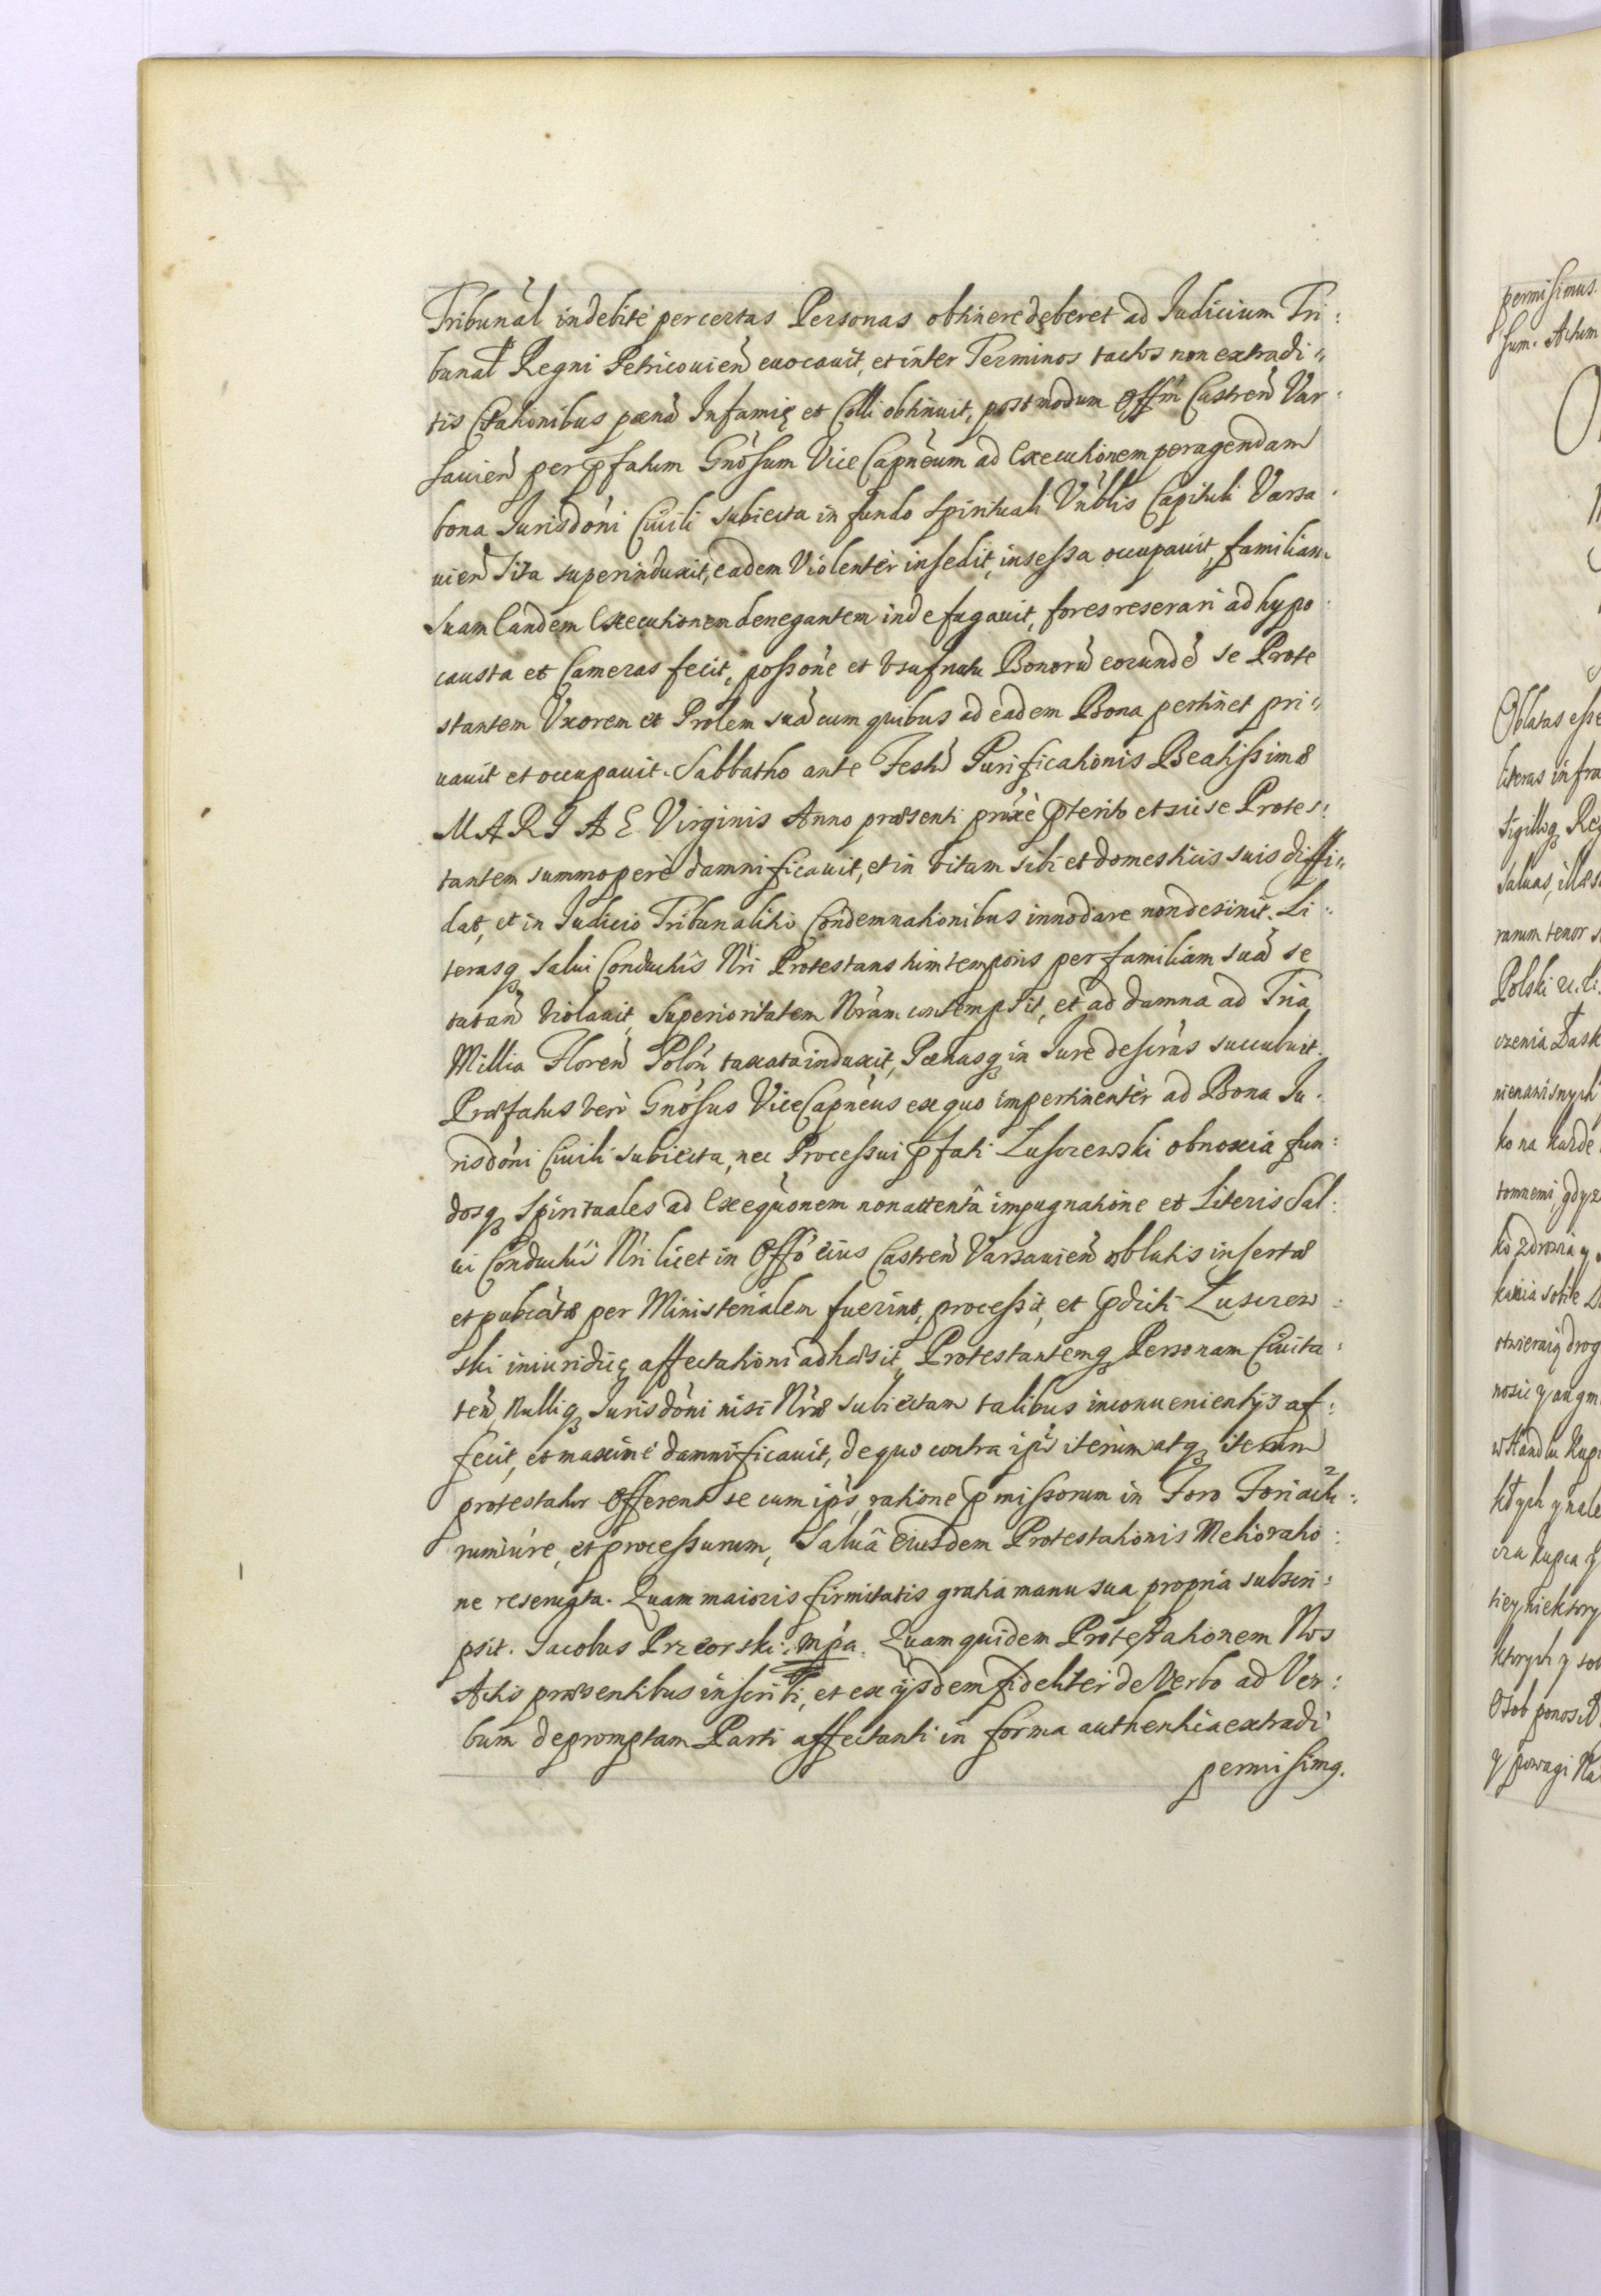 Tribunal indebitè per certas Personas obtinere deberet ad Iudicium Tri:
bunal Regni Petricouień euocauit, et inter Terminos tactos non extradi„
tis Citationibus poenā Infamię et Colli obtinuit, postmodum Offm̄ Castreń Var:
sauień per p̄fatum Gnōsum Vice Capnēum ad Executionem peragendam
bona Jurisdōni Ciuili subiecta in fundo Spirituali Vnblis Capituli Varsa:
uień Sita superinduxit, eadem Violentèr insedit, insessa occupauit, familiam
suam Eandem Executionem denegantem inde fugauit, fores reserari ad hypo:
causta et Cameras fecit, possōne et Vsufructu Bonorū eorundē se Prote
stantem Vxorem et Prolem suā cum quibus ad eadem Bona pertinet pri„
uauit et occupauit. Sabbatho ante Festū Purificationis Beatissimæ
MARIAE Virginis Anno præsenti prōxè p̄terito et sic se Protes:
tantem summoperè damnificauit, et in vitam sibi et domesticis suis diffi„
dat, et in Judicio Tribunalitio Condemnationibus innodare non desinit. Li:
terasq3 Salui Conductūs Nr̄i Protestans tum temporis per familiam suā se
tutań violauit, Superioritatem Nr̄am contempsit, et ad damna ad Tria
Millia Floreń Polōn taxata induxit, Pœnasq3 in Jure descrās succubuit.
Præfatus verò Gnōsus ViceCapnēus ex quo impertinentèr ad Bona Ju:
risdōni Ciuili subiecta, nec Processui p̄fati Luszczewski obnoxia fun:
dosq3 Spirituales ad Exequōnem non attentâ impugnatione et Literis Sal:
ui Conductûs Nr̄i licet in Offō eius Castreń Varsauień oblatis insertæ
et publicatæ per Ministerialem fuerint, processit, et p̄dicti Luszczew:
ski iniuridicę affectationi adhæsit, Protestantemq3 Personam Ciuita:
teń, Nulliq3 Jurisdōni nisi Nr̄æ subiectam talibus inconuenientijs af:
fecit, et maximè damnificauit, de quo contra ip̄s iterùm atq3 iterum
protestatur offerens se cum ip̄s ratione p̄missorum in Foro Fori actu:
rum iure, et processurum, Saluâ eiusdem Protestationis Melioratio:
ne reseruata. Quam maioris firmitatis gratia manu sua propria subscri:
psit. Jacobus Przeorski mp̄a. Quam quidem Protestationem Nos
Actis præsentibus inscribi, et ex ijsdem fideliter de Verbo ad Ver:
bum depromptam Parti affectanti in forma authentica extradi
permisim9.
permisimus.
sum. Actum
Oblatas esse
literas infra
Sigilliq3 Reg
saluas, illæs
rarum tenor
Polski
czenia Łask
nienawisnych
ko na każde
tomnemi, gdyz
kò zdrowia y
otwieraią drog
nosic y augm
w Handlu Kupi
ktych y nale
cza kupca
tiey niektory
ktorych y
Osob ponosić
y powagi Na